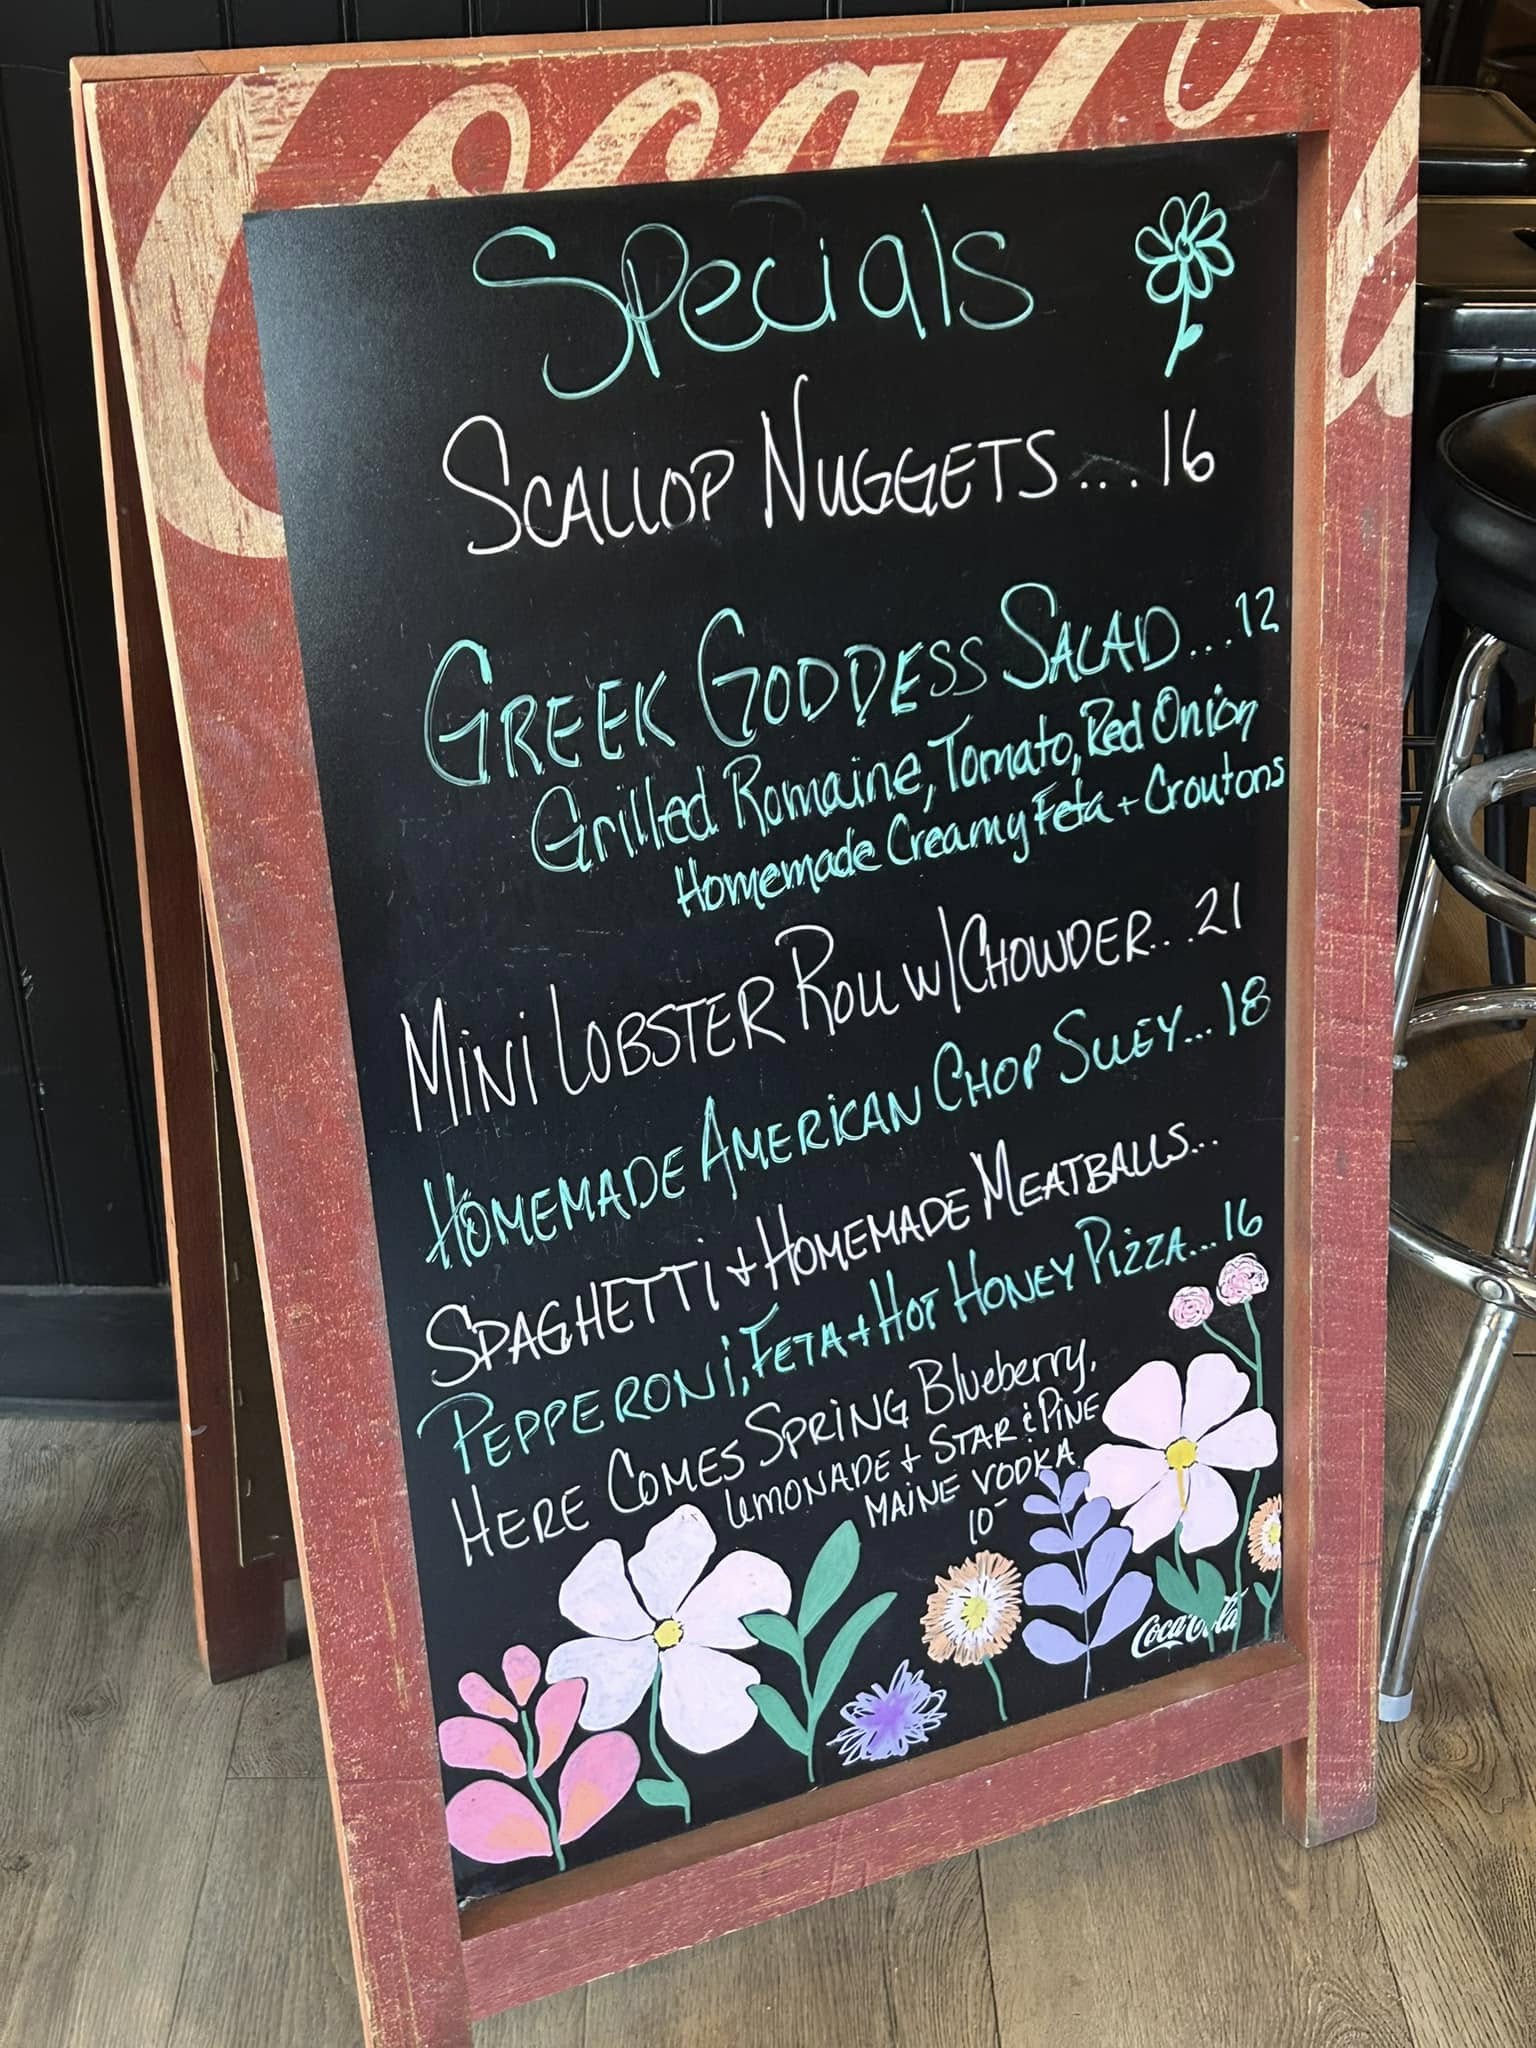 Coca-Co
Specials
SCALLOP NUGGETS... 16
GREEK GODDESS SALAD....12
Grilled Romaine, Tomato, Red Onion
Homemade Creamy Feta + Croutons
MINI LOBSTER ROLL W/CHOWDER...21
HOMEMADE AMERICAN CHOP SUEY...18
SPAGHETTI + HOMEMADE MEATBALLS...
PEPPERONI, FETA + HOT HONEY PIZZA...16
HERE COMES SPRING Blueberry,
LEMONADE + STAR & PINE
MAINE VODKA.
10-
Coca-Cola